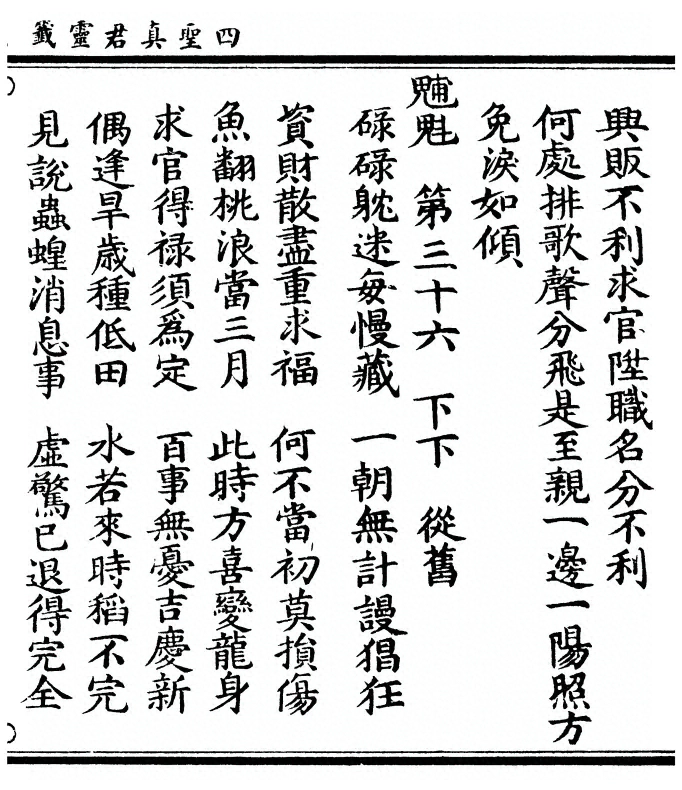 四聖真君靈籤
興販不利求官陞職名分不利
何處排歌聲分飛是至親一邊一陽照方
免淚如傾
魁 第三十六 下下 從舊
碌碌躭迷每慢藏 一朝無計謾猖狂
資財散盡重求福 何不當初莫損傷
魚翻桃浪當三月 此時方喜變龍身
求官得祿須為定 百事無憂吉慶新
偶逢旱歲種低田 水若來時稻不完
見說蟲蝗消息事 虛驚已退得完全